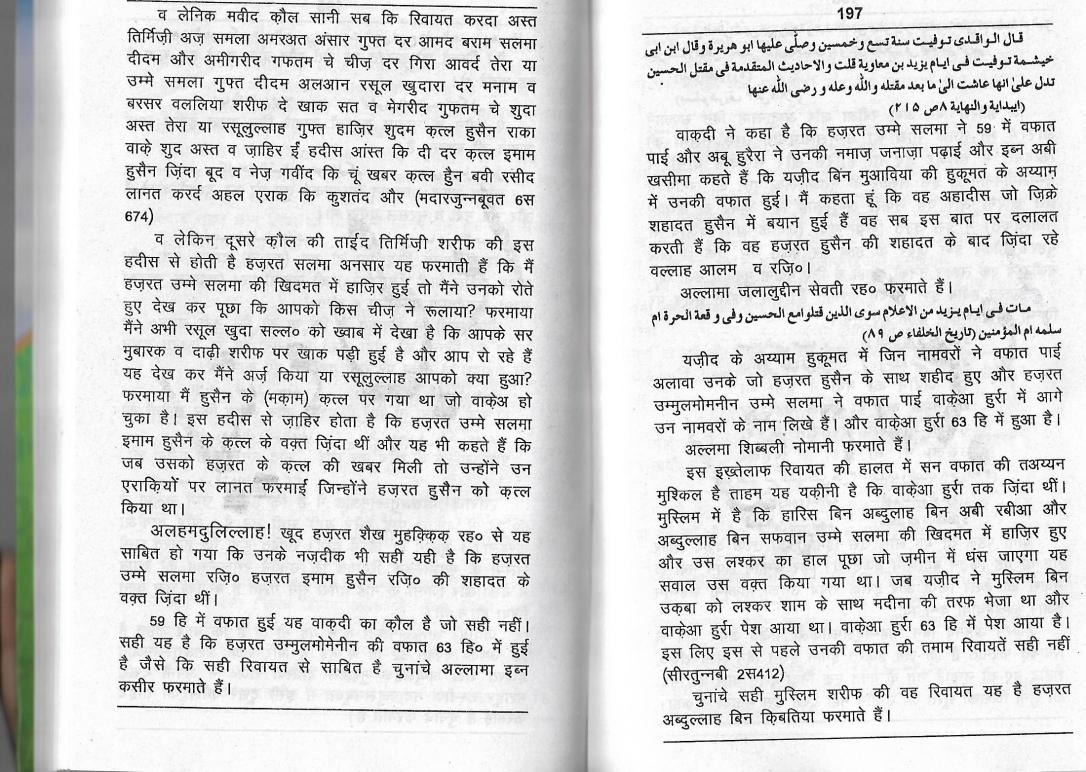 व लेनिक मवीद क़ौल सानी सब कि रिवायत करदा अस्त
तिर्मिज़ी अज़ समला अमरअत अंसार गुफ्त दर आमद बराम सलमा
दीदम और अमीगरीद गफतम चे चीज़ दर गिरा आवर्द तेरा या
उम्मे समला गुफ्त दीदम अलआन रसूल खुदारा दर मनाम व
बरसर वललिया शरीफ दे खाक सत व मेगरीद गुफतम चे शुदा
अस्त तेरा या रसूलुल्लाह गुफ्त हाज़िर शुदम क़त्ल हुसैन राका
वाक़े शुद अस्त व ज़ाहिर ईं हदीस आंस्त कि दी दर क़त्ल इमाम
हुसैन ज़िंदा बूद व नेज़ गवींद कि चूं खबर क़त्ल हुैन बवी रसीद
लानत करर्द अहल एराक कि कुशतंद और (मदारजुन्नबूवत 6स
674)
व लेकिन दूसरे क़ौल की ताईद तिर्मिज़ी शरीफ की इस
हदीस से होती है हज़रत सलमा अनसार यह फरमाती हैं कि मैं
हज़रत उम्मे सलमा की खिदमत में हाज़िर हुई तो मैंने उनको रोते
हुए देख कर पूछा कि आपको किस चीज़ ने रूलाया? फरमाया
मैंने अभी रसूल खुदा सल्ल० को ख्वाब में देखा है कि आपके सर
मुबारक व दाढ़ी शरीफ पर खाक पड़ी हुई है और आप रो रहे हैं
यह देख कर मैंने अर्ज़ किया या रसूलुल्लाह आपको क्या हुआ?
फरमाया मैं हुसैन के (मक़ाम) क़त्ल पर गया था जो वाक़ेअ हो
चुका है। इस हदीस से ज़ाहिर होता है कि हज़रत उम्मे सलमा
इमाम हुसैन के क़त्ल के वक़्त ज़िंदा थीं और यह भी कहते हैं कि
जब उसको हज़रत के क़त्ल की खबर मिली तो उन्होंने उन
एराक़ियों पर लानत फरमाई जिन्होंने हज़रत हुसैन को क़त्ल
किया था।
अलहमदुलिल्लाह! खूद हज़रत शैख मुहक़्क़िक़ रह० से यह
साबित हो गया कि उनके नज़दीक भी सही यही है कि हज़रत
उम्मे सलमा रज़ि० हज़रत इमाम हुसैन रज़ि० की शहादत के
वक़्त ज़िंदा थीं।
59 हि में वफात हुई यह वाक़दी का क़ौल है जो सही नहीं।
सही यह है कि हज़रत उम्मुलमोमेनीन की वफात 63 हि० में हुई
है जैसे कि सही रिवायत से साबित है चुनांचे अल्लामा इब्न
कसीर फरमाते हैं।
197
قال الواقدی توفیت سنة تسع وخمسین وصلّی علیها ابو هریرة وقال ابن ابی
خیشمة توفیت فی ایام یزید بن معاویة قلت والاحادیث المتقدمة فی مقتل الحسین
تدل علیٰ انها عاشت الیٰ ما بعد مقتله واللّٰه وعله و رضی اللّٰه عنها
(ایبدایة والنهایة ۸ص ۲۱۵)
वाक़दी ने कहा है कि हज़रत उम्मे सलमा ने 59 में वफात
पाई और अबू हुरैरा ने उनकी नमाज़ जनाज़ा पढ़ाई और इब्न अबी
खसीमा कहते हैं कि यज़ीद बिन मुआविया की हुकूमत के अय्याम
में उनकी वफात हुई। मैं कहता हूं कि वह अहादीस जो ज़िक्रे
शहादत हुसैन में बयान हुई हैं वह सब इस बात पर दलालत
करती हैं कि वह हज़रत हुसैन की शहादत के बाद ज़िंदा रहे
वल्लाह आलम व रज़ि०।
अल्लामा जलालुद्दीन सेवती रह० फरमाते हैं।
مات فی ایام یزید من الاعلام سوی الذین قتلوامع الحسین وفی و قعة الحرة ام
سلمه ام المؤمنین (تاریخ الخلفاء ص ۸۹)
यज़ीद के अय्याम हुकूमत में जिन नामवरों ने वफात पाई
अलावा उनके जो हज़रत हुसैन के साथ शहीद हुए और हज़रत
उम्मुलमोमनीन उम्मे सलमा ने वफात पाई वाक़ेआ हुर्रा में आगे
उन नामवरों के नाम लिखे हैं। और वाक़ेआ हुर्रा 63 हि में हुआ है।
अल्लमा शिब्बली नोमानी फरमाते हैं।
इस इख़्तेलाफ रिवायत की हालत में सन वफात की तअय्यन
मुश्किल है ताहम यह यक़ीनी है कि वाक़ेआ हुर्रा तक ज़िंदा थीं।
मुस्लिम में है कि हारिस बिन अब्दुलाह बिन अबी रबीआ और
अब्दुल्लाह बिन सफवान उम्मे सलमा की खिदमत में हाज़िर हुए
और उस लश्कर का हाल पूछा जो ज़मीन में धंस जाएगा यह
सवाल उस वक़्त किया गया था। जब यज़ीद ने मुस्लिम बिन
उक़्बा को लश्कर शाम के साथ मदीना की तरफ भेजा था और
वाक़ेआ हुर्रा पेश आया था। वाक़ेआ हुर्रा 63 हि में पेश आया है।
इस लिए इस से पहले उनकी वफात की तमाम रिवायतें सही नहीं
(सीरतुन्नबी 2स412)
चुनांचे सही मुस्लिम शरीफ की वह रिवायत यह है हज़रत
अब्दुल्लाह बिन क़िबतिया फरमाते हैं।